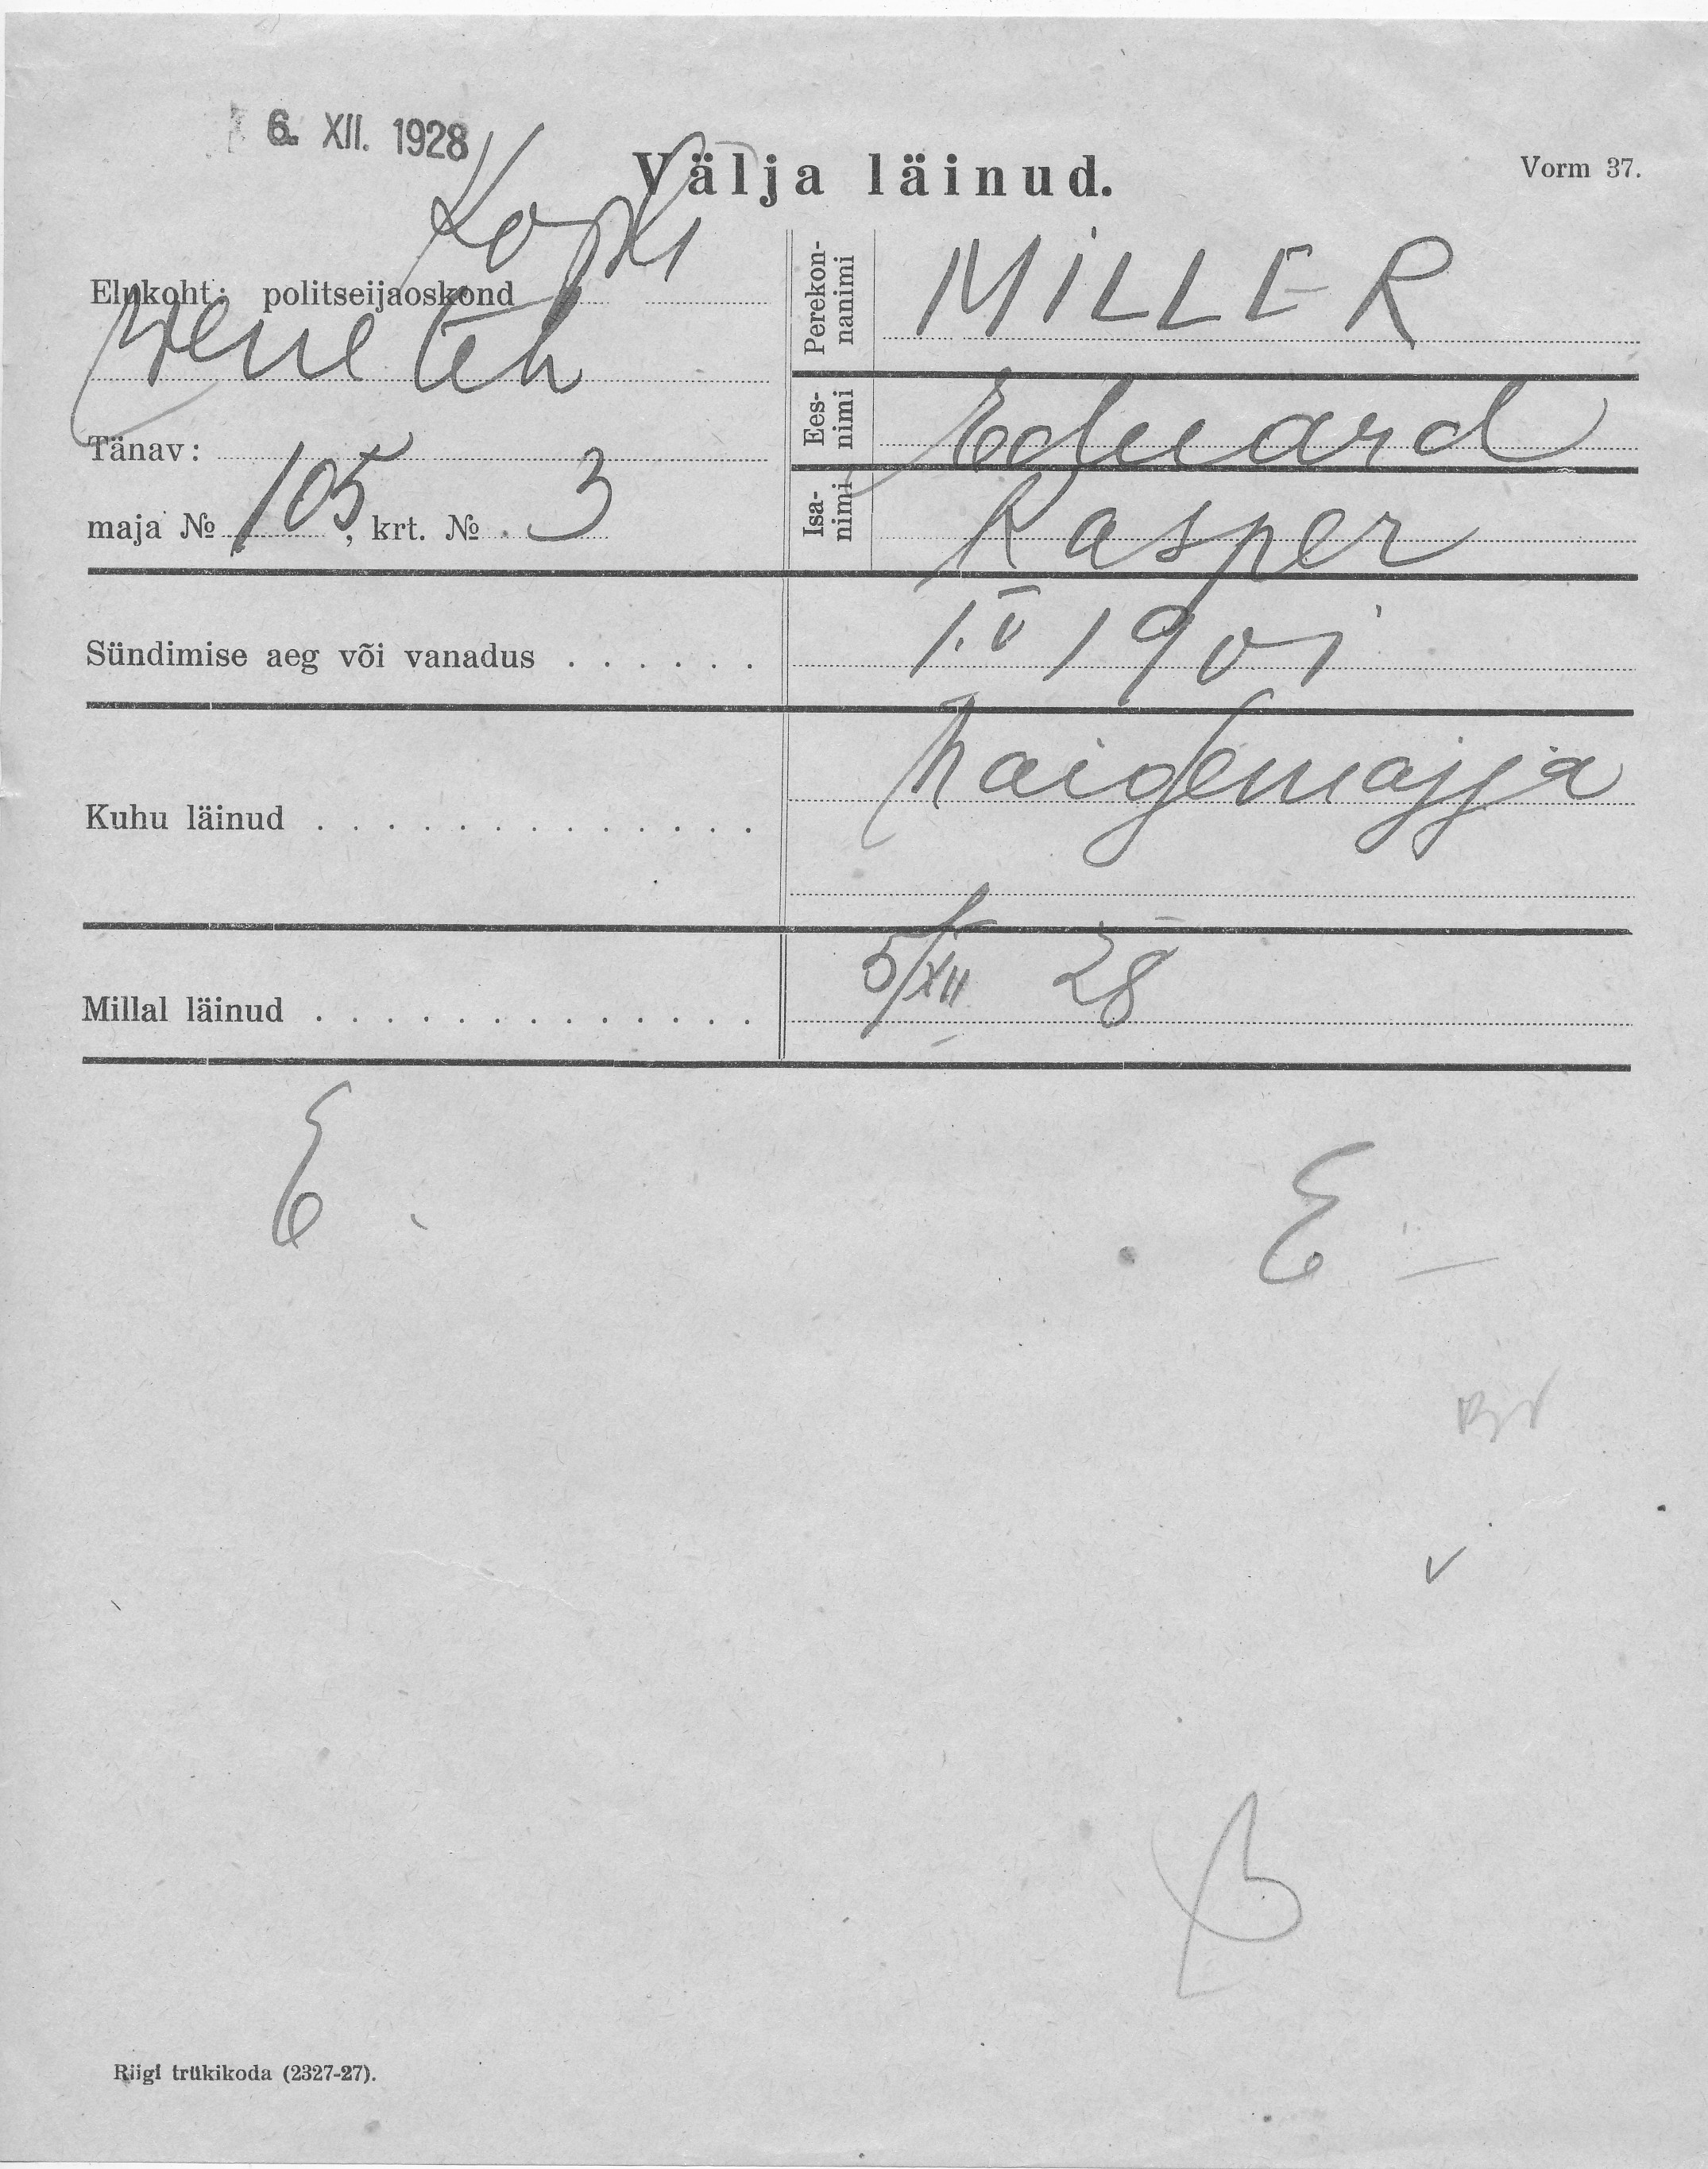 6. XII. 1928
Välja läinud.
Vorm 37.
Kopli
Elukoht: politseijaoskond
Tänav:
maja № 105, krt. № 3
Perekonnanimi MILLER
Eesnimi Eduard
Isanimi Kasper
Sündimise aeg või vanadus . . . . . . 1. V 1901
Kuhu läinud . . . . . . . . . . . . . haigemajja
Millal läinud . . . . . . . . . . . . . 5/XII 28
E
E
Riigi trükikoda (2327-27).